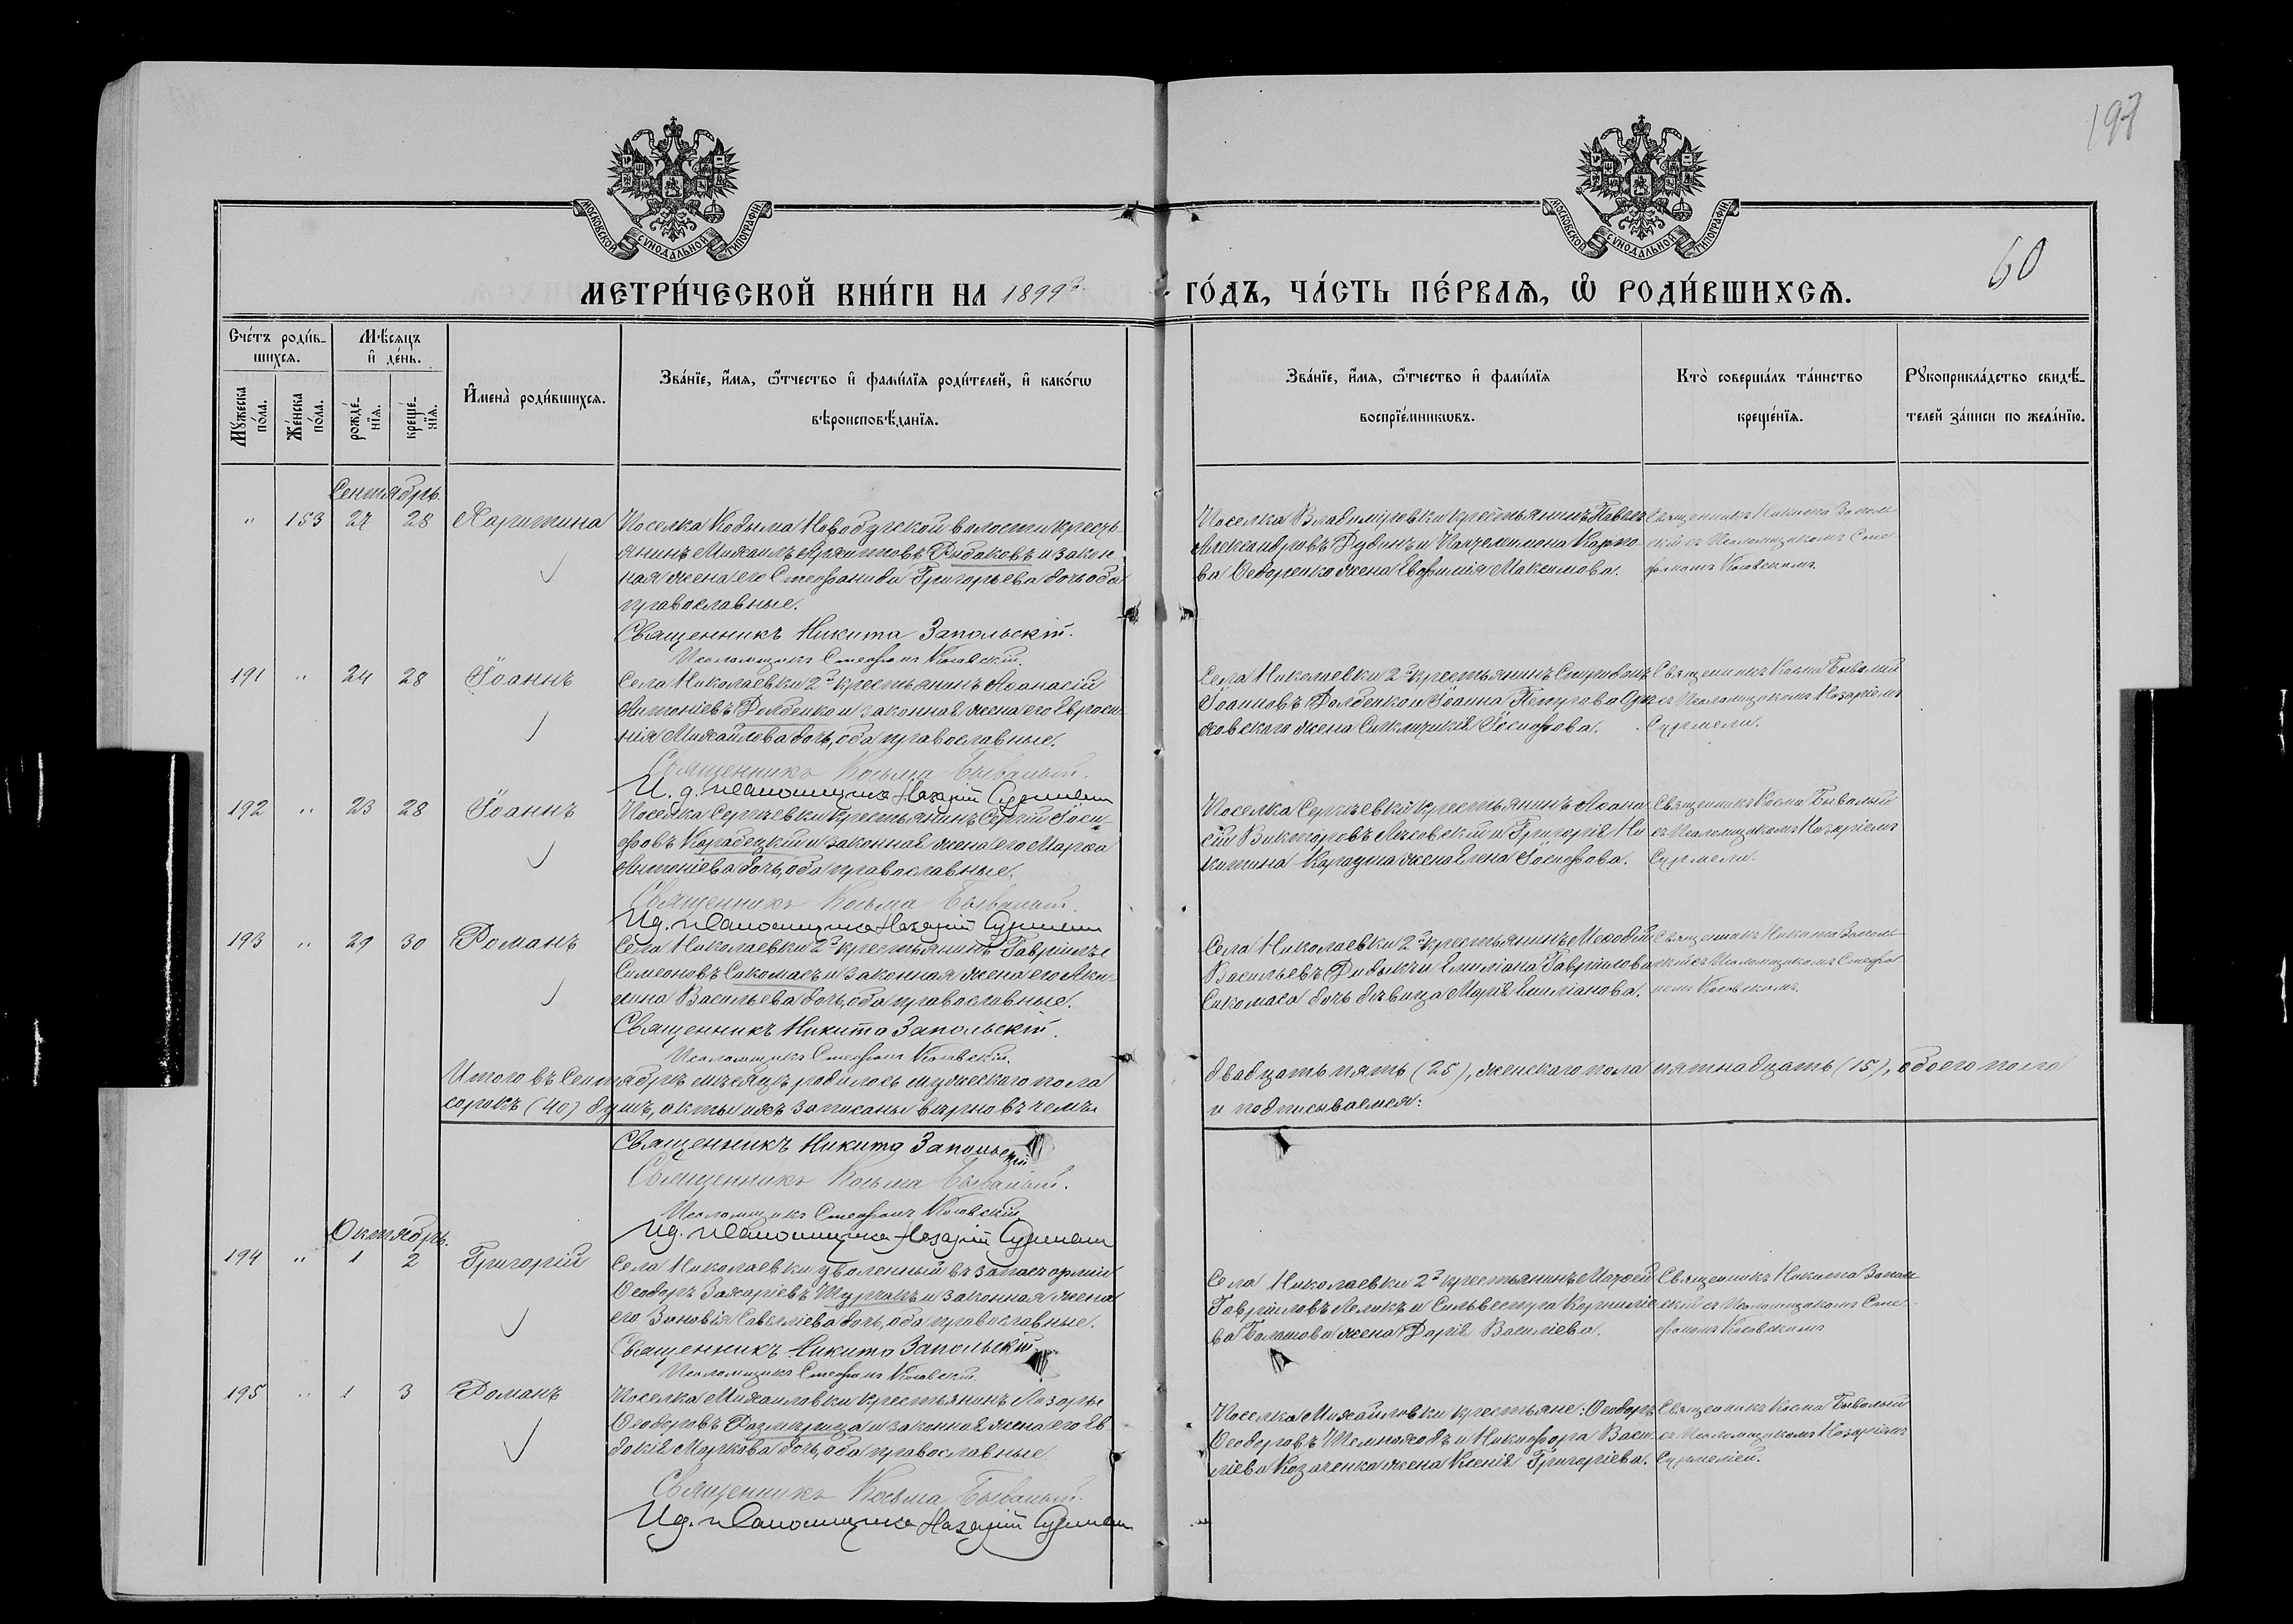 197
МОСКОВСКОЙ СУНОДАЛЬНОЙ ТИПОГРАФІИ
МОСКОВСКОЙ СУНОДАЛЬНОЙ ТИПОГРАФІИ
60
МЕТРИ́ЧЕСКОЙ КНИ́ГИ НА 1899 го́дъ, ЧА́СТЬ ПЕ́РВАѦ, Ѡ РОДИ́ВШИХСѦ.
Сче́тъ роди́в-
шихсѧ.
Мѣ́сѧцъ
и҆ де́нь.
Мꙋ́жеска по́ла.
Же́нска по́ла.
рожде́-
нїѧ.
креще́-
нїѧ.
И҆мена̀ роди́вшихсѧ.
Зва́нїе, и҆́мѧ, ѻ҆́тчество и҆ фами́лїѧ роди́телей, и҆ како́гѡ
вѣроисповѣ́данїѧ.
Зва́нїе, и҆́мѧ, ѻ҆́тчество и҆ фами́лїѧ
воспрїе́мникѡвъ.
Кто̀ соверша́лъ та́инство
креще́нїѧ.
Рꙋкоприкла́дство свидѣ́-
телей за́писи по жела́нїю.
Сентябрь.
" 153 27 28 Харитина
Поселка Кодыма Новобугской волости кресть-
янинъ Михаилъ Рыбаковъ и закон-
ная жена его Стефанида Григорьева дочь оба
православные.
Священникъ Никита Запольскій.
Псаломщикъ Стефанъ Косовскій.
Поселка Владиміровки крестьянинъ Павелъ
Александровъ Дудинъ и Пантелимона Карпо-
ва Федоренко жена Евфимія Максимова.
Священникъ Никита Заполь-
скій съ Псаломщикомъ Сте-
фаномъ Косовскимъ.
191 " 24 28 Іоаннъ
Села Николаевки 2й крестьянинъ Аѳанасій
Антоніевъ Долбенко и законная жена его Евроси-
нія Михайлова дочь, оба православные.
Священникъ Косьма Бывалый.
И. д. псаломщика Назарій Сурмели
Села Николаевки 2й крестьянинъ Спиридонъ
Іоанновъ Долбенко и Іоанна Петрова
жена Синклитикія Іосифова.
Священникъ Косма Бывалый
съ Псаломщикомъ Назаріемъ
Сурмели.
192 " 23 28 Іоаннъ
Поселка Сергѣевки крестьянинъ Сергій Іоси-
фовъ Карабецкій и законная жена его Марѳа
Антоніева дочь, оба православные.
Священникъ Косьма Бывалый.
И.д. псаломщика Назарій Сурмели
Поселка Сергѣевки крестьянинъ Аѳана-
сій Викторовъ Лисовскій и Григорія Ни-
китина жена Елена Іосифова.
Священникъ Косма Бывалый
съ Псаломщикомъ Назаріемъ
Сурмели.
193 " 29 30 Романъ
Села Николаевки 2й крестьянинъ Гавріилъ
Симеоновъ Сикомасъ и законная жена его Аки-
лина Васильева дочь, оба православные.
Священникъ Никита Запольскій.
Псаломщикъ Стефанъ Косовскій.
Села Николаевки 2й крестьянинъ Меѳодій
Васильевъ Дидыкъ и Емиліана Гавріилова
Сикомаса дочь дѣвица Марія Емиліанова.
Священникъ Никита Заполь-
скій съ Псаломщикомъ Стефа-
номъ Косовскимъ.
Итого въ Сентябрѣ мѣсяцѣ родилось мужескаго пола двадцать пять (25), женскаго пола пятнадцать (15), обоего пола
сорокъ (40) душъ, акты ихъ записаны вѣрно въ чемъ и подписываемся:
Священникъ Никита Запольскій
Священникъ Косьма Бывалый.
Псаломщикъ Стефанъ Косовскій
И.д. псаломщика Назарій Сурмели
Октябрь.
194 " 1 2 Григорій
Села Николаевки уволенный въ запасъ арміи
Ѳеодоръ Захаріевъ Турчакъ и законная жена
его Зиновія Савеліева дочь, оба православные.
Священникъ Никита Запольскій
Псаломщикъ Стефанъ Косовскій.
Села Николаевки 2й крестьянинъ Моѵсей
Гавріиловъ Лелюкъ и Сильвестра Корниліе-
ва Балашова жена Дарія Василіева.
Священникъ Никита Заполь-
скій съ Псаломщикомъ Сте-
фаномъ Косовскимъ
195 " 1 3 Романъ
Поселка Михаиловки крестьянинъ Лазарь
Ѳеодоровъ Размерица и законная жена его Ев-
докія Маркова дочь, оба православные.
Священникъ Косьма Бывалый.
И.д. псаломщика Назарій Сурмели
Поселка Михайловки крестьяне: Ѳеодоръ
Ѳеодоровъ и Никифора Васи-
ліева Козаченка жена Ксенія Григоріева.
Священникъ Косма Бывалый
съ Псаломщикомъ Назаріемъ
Сурмеліей.